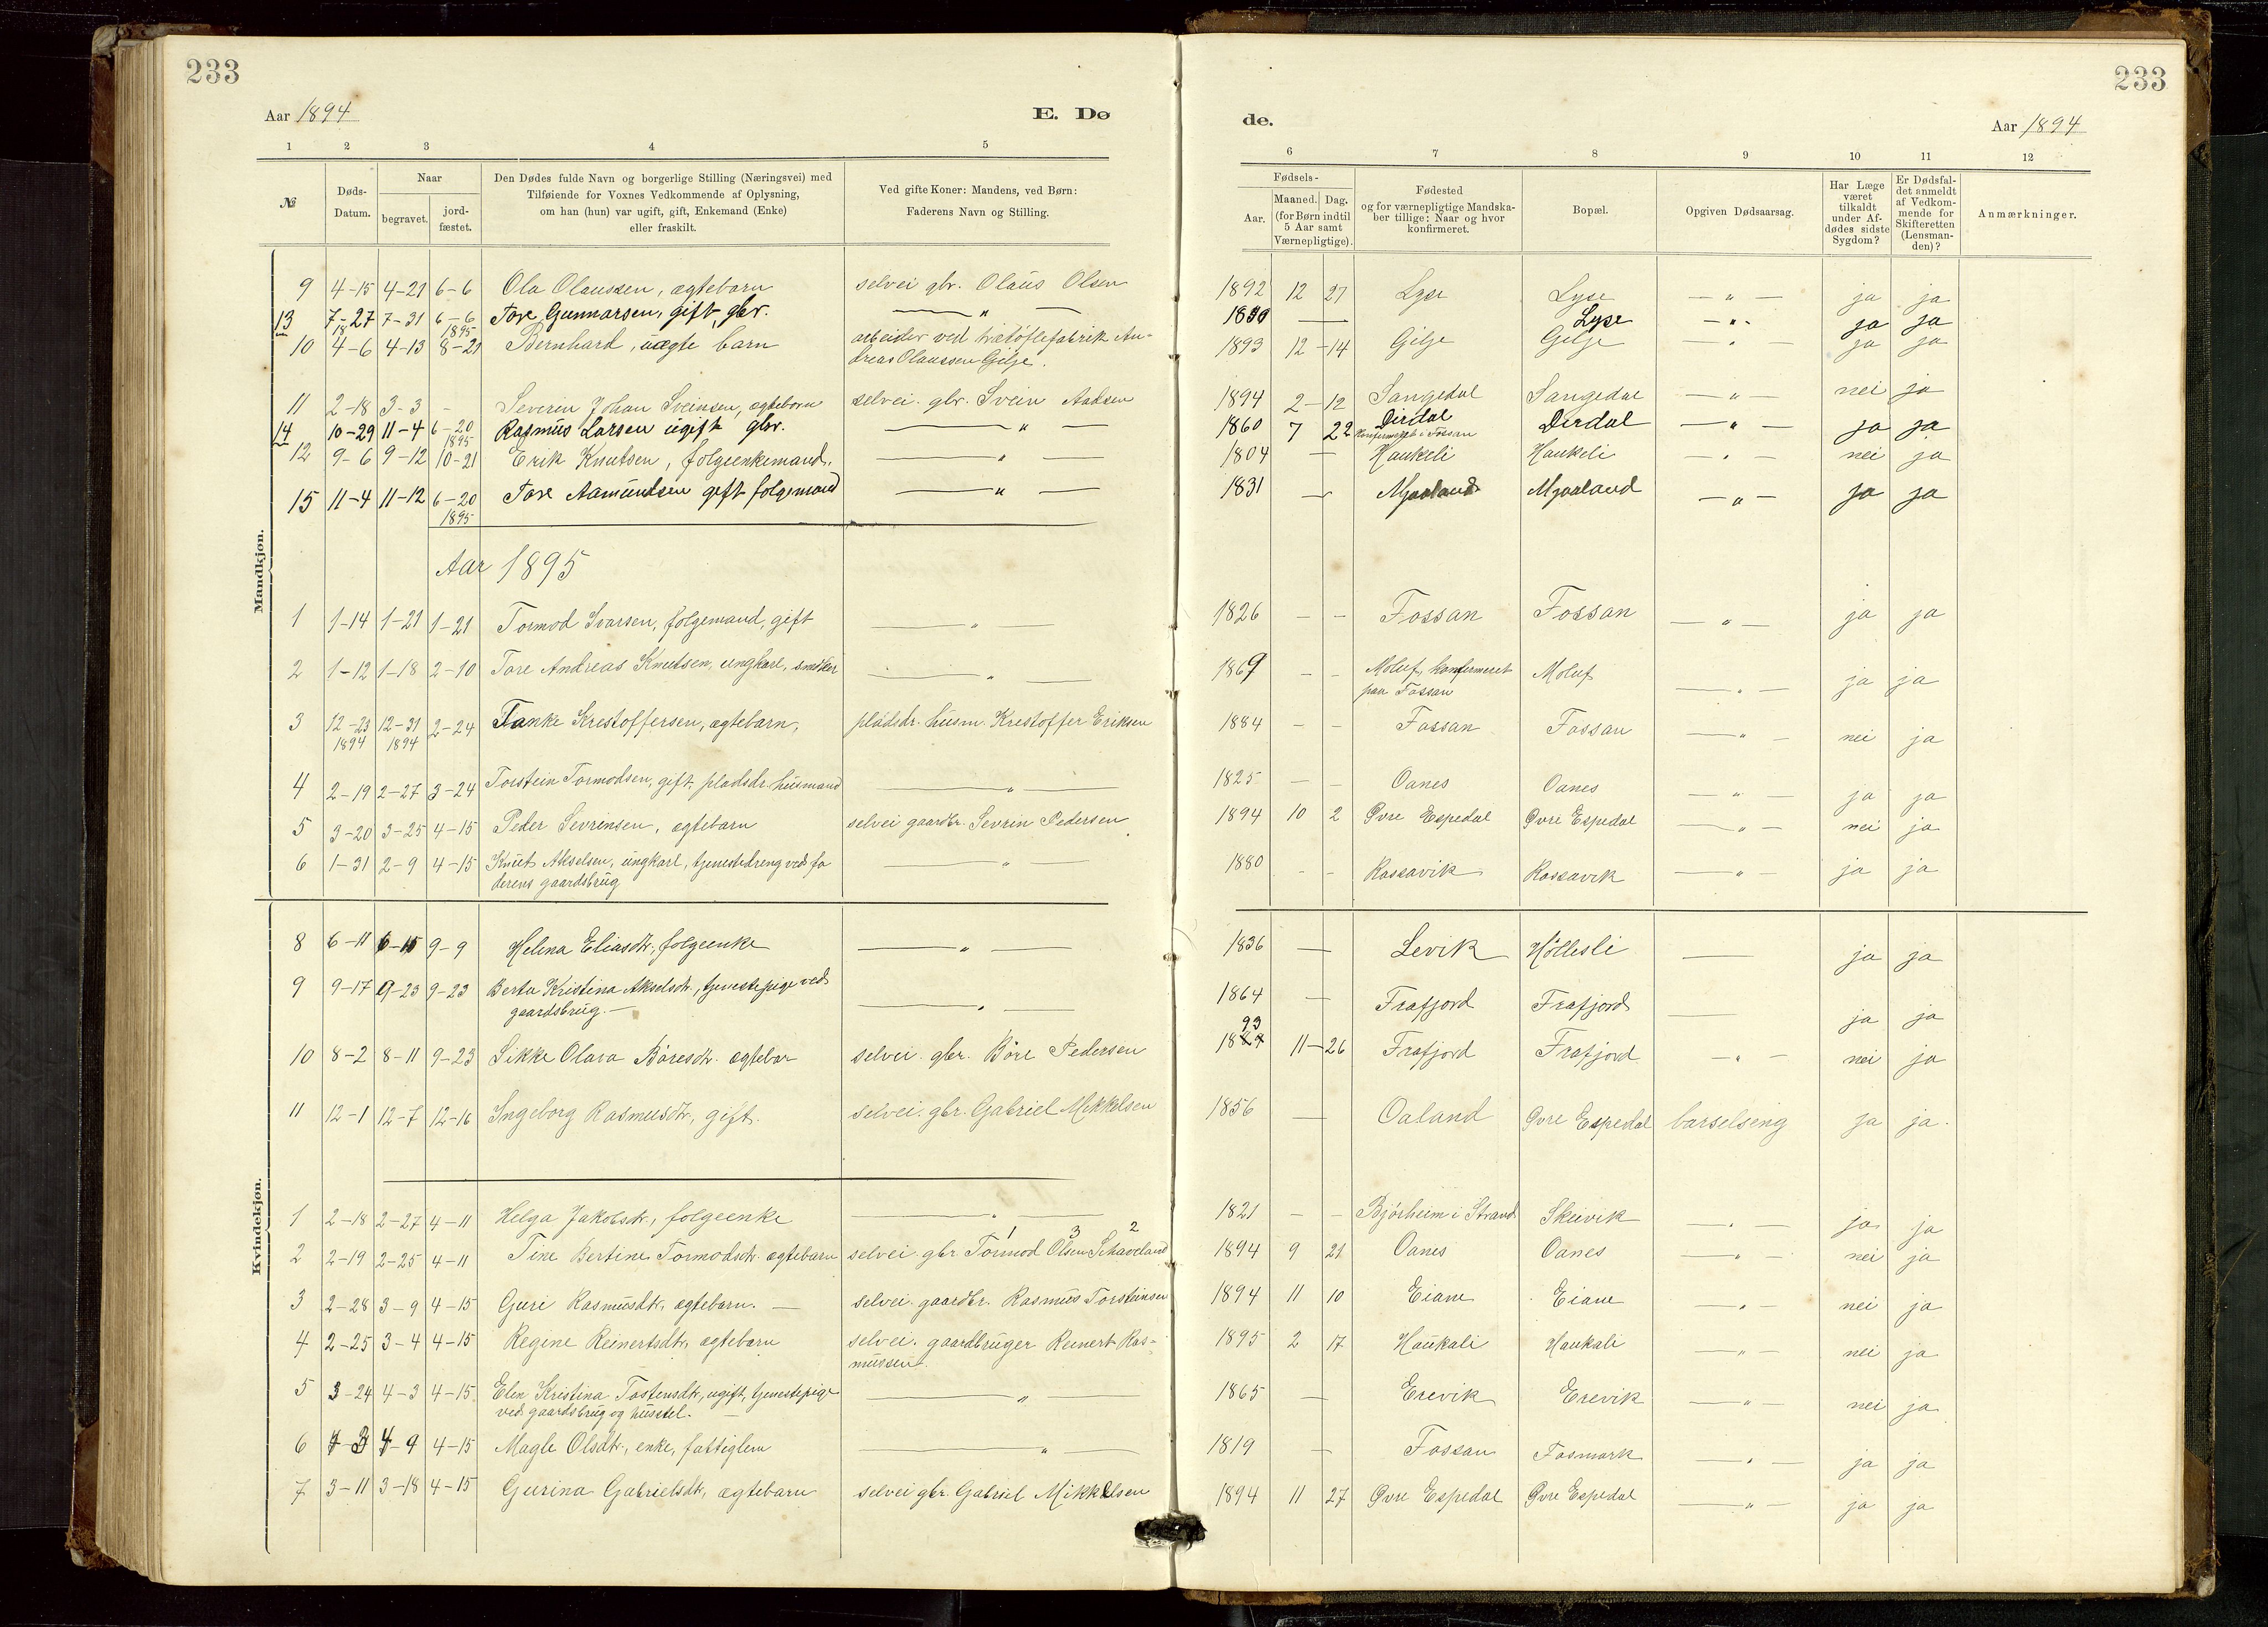 233
233
Aar 1894
E. Dø
de.
Aar 1894
1 2 3 4 5 6 7 8 9 10 11 12
№
Døds-
Datum.
Naar
begravet.
jord-
fæstet.
Den Dødes fulde Navn og borgerlige Stilling (Næringsvei) med
Tilføiende for Voxnes Vedkommende af Oplysning,
om han (hun) var ugift, gift, Enkemand (Enke)
eller fraskilt.
Ved gifte Koner: Mandens, ved Børn:
Faderens Navn og Stilling.
Fødsels-
Aar.
Maaned. Dag.
(for Børn indtil
5 Aar samt
Værnepligtige).
Fødested
og for værnepligtige Mandska-
ber tillige: Naar og hvor
konfirmeret.
Bopæl.
Opgiven Dødsaarsag.
Har Læge
været
tilkaldt
under Af-
dødes sidste
Sygdom?
Er Dødsfal-
det anmeldt
af Vedkom-
mende for
Skifteretten
(Lensman-
den)?
Anmærkninger.
Mandkjøn.
9 4-15 4-21 6-6 Ola Olaussen, ægtebarn selvei gbr. Olaus Olsen 1892 12 27 Lyse Lyse — " — ja ja
13 7-27 7-31 6-6 1895 Tore Gunnarsen, gift, gbr. — " — Lyse — " - ja ja
10 4-6 4-13 8-21 Bernhard, uægte barn arbeider ved trætøflefabrik An-
dreas Olaussen Gilje. 1893 12-14 Gilje Gilje — " — ja ja
11 2-18 3-3 - Severin Johan Sveinsen, ægtebarn selvei. gbr. Svein Aadsen 1894 2-12 Sangedal Sangedal — " — nei ja
14 10-29 11-4 6-20 1895 Rasmus Larsen ugift gbr. — " — 1860 7 22 Dirdal
konfirmeret i Fossan Dirdal — " — ja ja
12 9-6 9-12 10-21 Erik Knutsen, folgeenkemand. — " — 1804 — Haukeli Haukeli — " — nei ja
15 11-4 11-12 6-20 1895 Tore Aamundsen gift folgemand — " — 1831 — Mjaaland Mjaaland — " — ja ja
Aar 1895
1 1-14 1-21 1-21 Tormod Ivarsen, folgemand, gift — " — 1826 - - Fossan Fossan — " — ja ja
2 1-12 1-18 2-10 Tore Andreas Knutsen, ungkarl, snedker — " — 1869 - - Moluf, konfirmeret
paa Fossan Moluf — " — ja ja
3 12-23 1894 12-31 1894 2-24 Tanke Krestoffersen, ægtebarn, pladsdr. husm. Krestoffer Eriksen 1884 - - Fossan Fossan — " — nei ja
4 2-19 2-27 3-24 Torstein Tormodsen, gift, pladsdr. husmand — " — 1825 - - Oanes Oanes — " — ja ja
5 3-20 3-25 4-15 Peder Sevrinsen, ægtebarn selvei gaardbr. Sevrin Pedersen 1894 10 2 Øvre Espedal Øvre Espedal — " — nei ja
6 1-31 2-9 4-15 Knut Akselsen, ungkarl, tjenestedreng ved fa
derens gaardsbrug — " — 1880 - - Rossavik Rossavik — " — ja ja
Kvindekjøn.
8 6-11 6-15 9-9 Helena Eliasdtr., folgeenke — " — 1836 — Levik Höllesli — ja ja
9 9-17 9-23 9-23 Berta Kristina Akselsdtr., tjenestepige ved
gaardsbrug. — — " — 1864 — Frafjord Frafjord — ja ja
10 8-2 8-11 9-23 Sikke Olava Böresdtr. ægtebar selvei. gbr. Böre Pedersen 93
1894 11-26 Frafjord Frafjord — " — nei ja
11 12-1 12-7 12-16 Ingeborg Rasmusdtr., gift. selvei. gbr. Gabriel Mikkelsen 1856 — Oaland Øvre Espedal barselseng ja ja.
1 2-18 2-27 4-11 Helga Jakobsdtr., folgeenke — " — 1821 - - Bjórheim i Strand Skeivik — " — ja ja
1 3 2
2 2-19 2-25 4-11 Tine Bertine Tormodsdtr. ægtebarn selvei. gbr Tormod Olsen Skaveland 1894 9 21 Oanes Oanes — " — nei ja
3 2-28 3-9 4-15 Guri Rasmusdtr, ægtebarn. — selvei. gaardbr. Rasmus Torsteinsen 1894 11 10 Eiane Eiane — " — nei ja
4 2-25 3-4 4-15 Regine Reinertsdtr, ægtebarn selvei. gaardbruger Reinert Ras-
mussen. 1895 2 17 Haukali Haukali — " — nei ja
5 3-24 4-3 4-15 Elen Kristina Tostensdtr, ugift, tjenestepige
ved gaardsbrug og husstel. — — " — 1865 — Erevik Erevik — " — nei ja
6 4-9 4-15 Magle Olsdtr., enke, fattiglem — " — 1819 — Fossan Fosmark — " — ja ja
7 3-11 3-18 4-15 Gurina Gabrielsdtr, ægtebarn selvei gbr. Gabriel Mikkelsen 1894 11 27 Øvre Espedal Øvre Espedal — " — ja ja